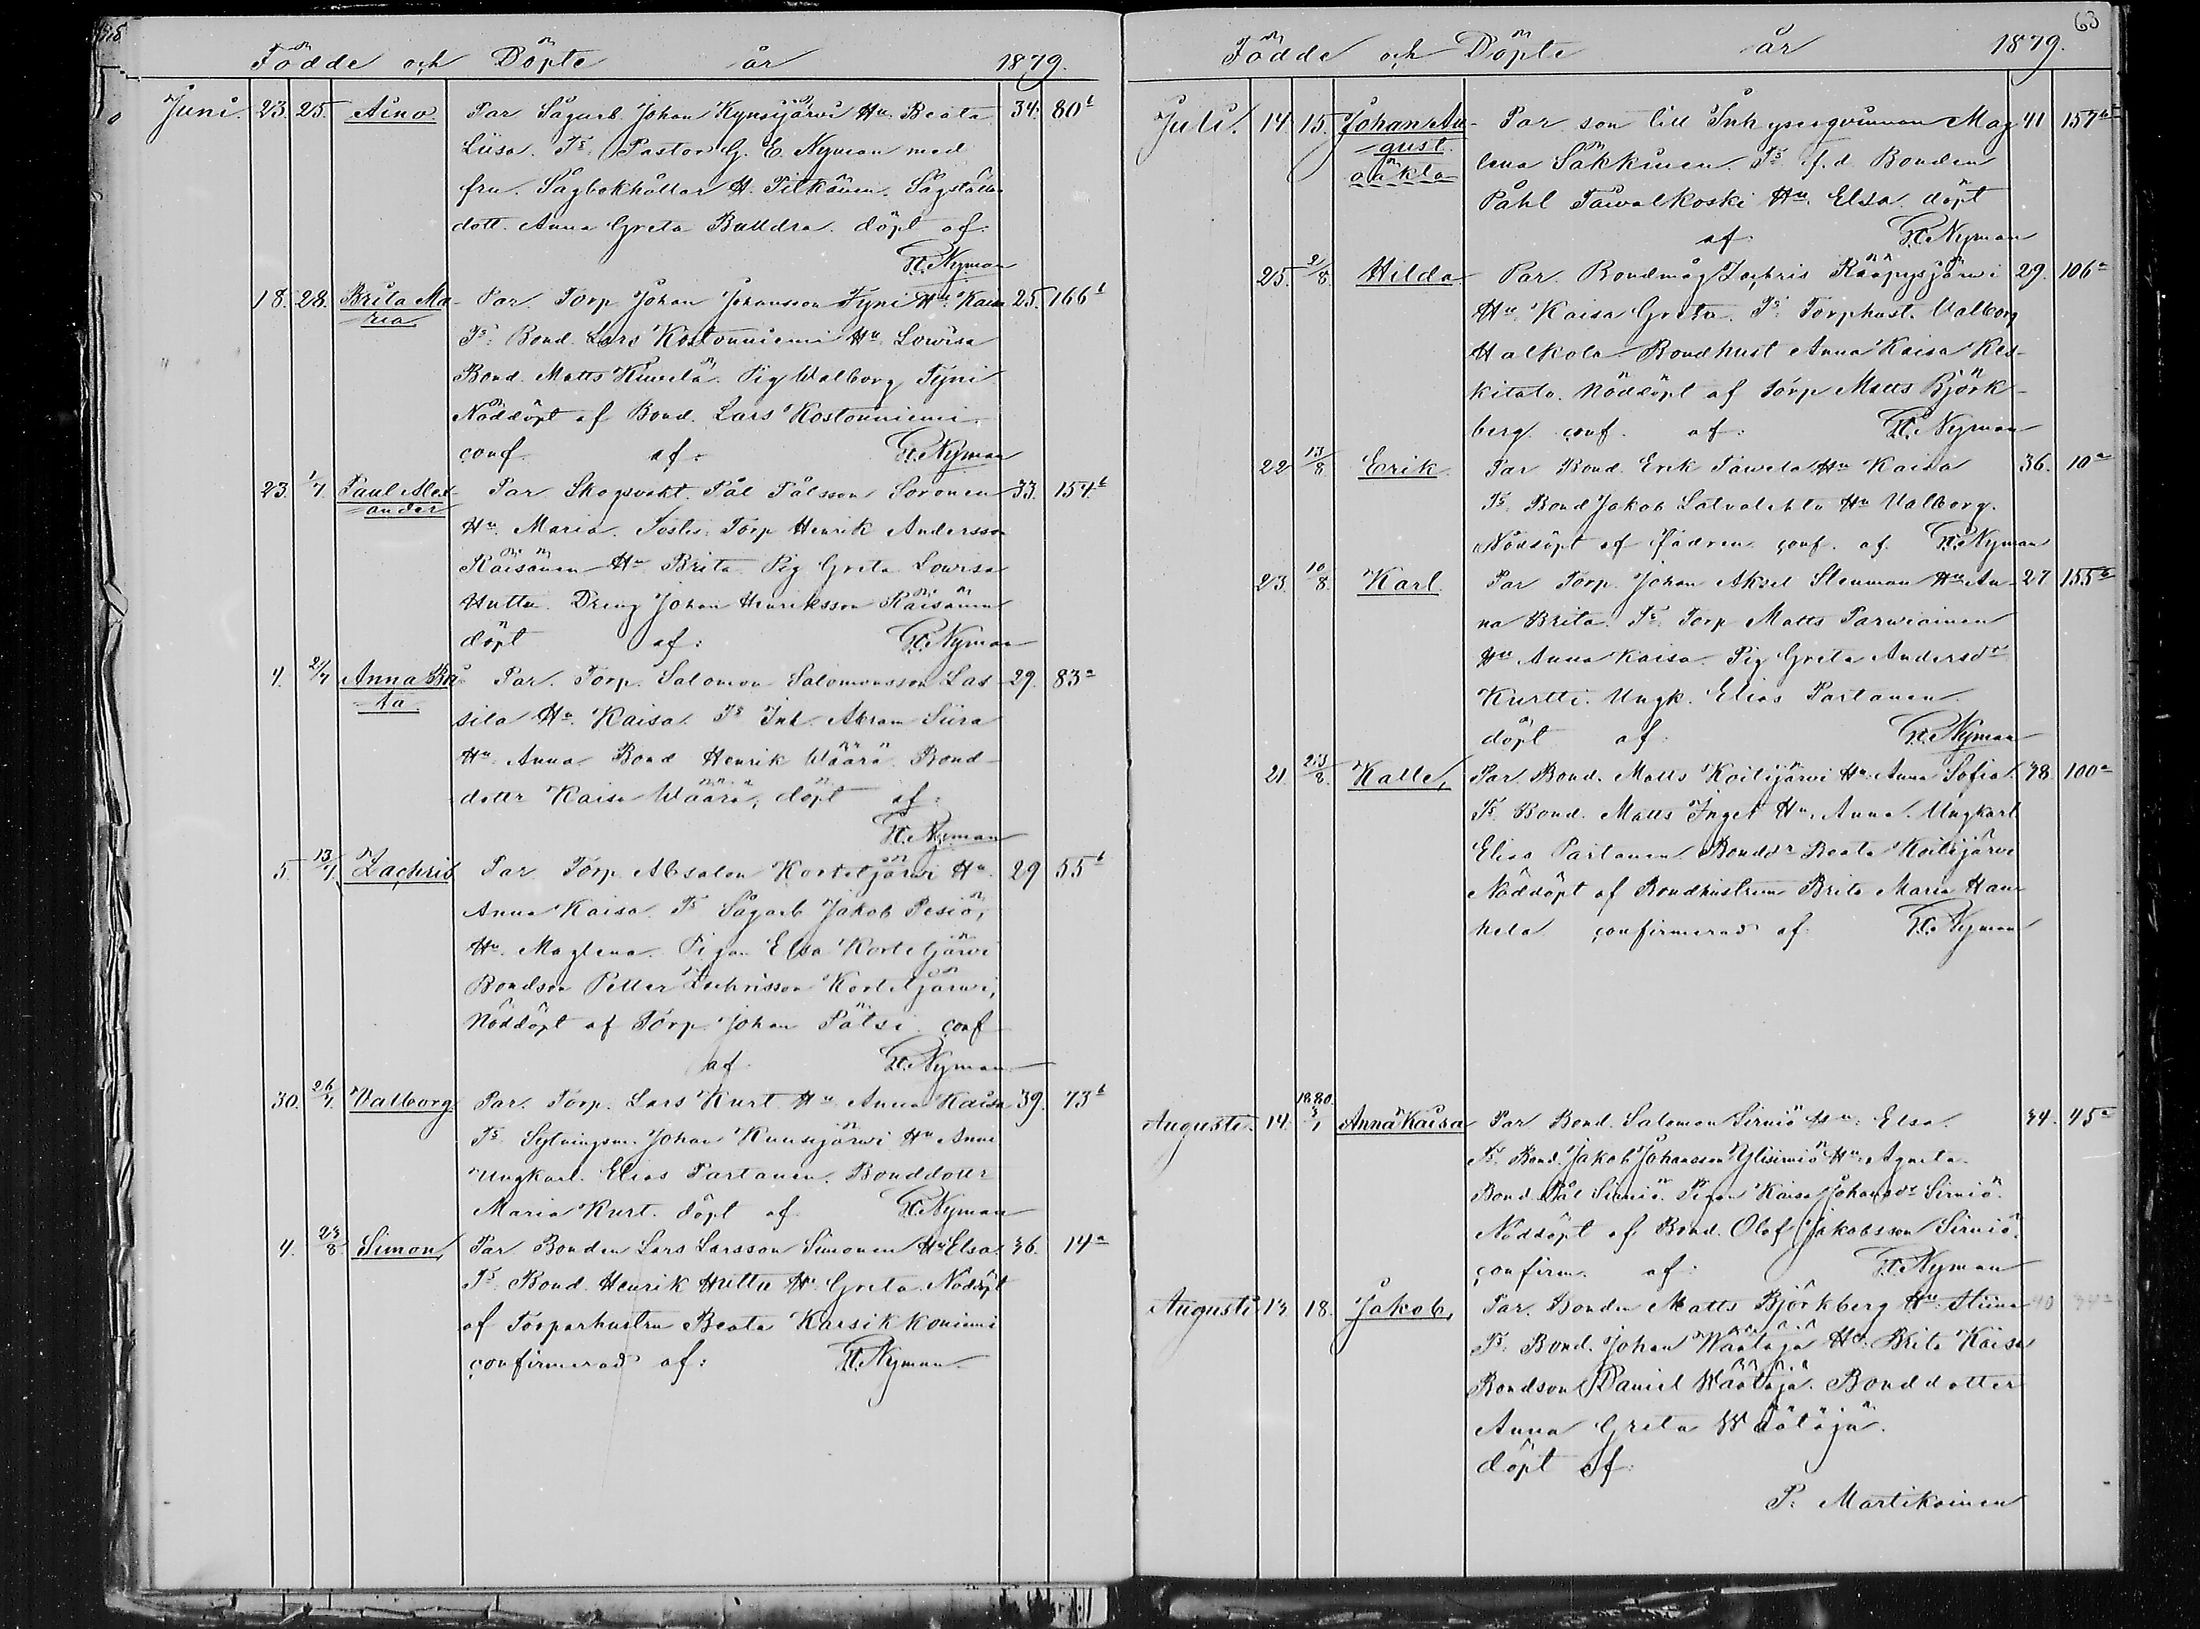 Födde och Döpte år 1879.
Juni. 23. 25. Aino Par Sågarb. Johan Kynsijärvi Hu. Beata 34. 80b
Liisa. Ts. Pastor G. E. Nyman med
fru. Sågbokhållar H. Pitkänen. Sågställar
dott. Anna Greta Balldra. döpt af
H. Nyman
18. 28. Brita Ma- Par. Torp. Johan Johansson Tyni Hu. Kaisa 25. 166b
ria Ts. Bond. Lars Kostonniemi Hu. Lowisa
Bond. Matts Kuvela. Pig. Walborg Tyni
Nöddöpt af Bond. Lars Kostonniemi.
conf. af: H. Nyman
23. 1/7 Paul Alex- Par Skogsvakt. Pål Pålsson Soronen 33. 154b
ander Hu. Maria. Testes: Torp Henrik Andersson
Räisänen Hu Brita. Pig Greta Lowisa
Huttu. Dreng Johan Henriksson Räisänen
döpt af: H. Nyman
4. 2/7 Anna Bea- Par. Torp. Salomon Salomonsson Las- 29. 83a
ta sila Hu. Kaisa. Ts Inh. Abram Siira
Hu. Anna Bond Henrik Wäärä. Bond-
dottr Kaisa Wäärä, döpt af:
H. Nyman
5. 13/7 Zachris Par Torp. Absalon Kortetjärvi Hu. 29 55b
Anna Kaisa. Ts Sågarb Jakob Pesiö,
Hu. Maglena. Pigan Elsa Kortetjärvi
Bondson Petter Zachrisson Kortetjärvi,
Nöddöpt af Torp. Johan Pätsi. conf
af H. Nyman
30. 26/7. Valborg. Par. Torp. Lars Kurt Hu. Anna Kaisa 39. 73b
Ts. Sytningsm. Johan Kuusijärvi Hu Anna
Ungkarl. Elias Partanen. Bonddottr
Maria Kurt. döpt af H. Nyman
4. 24/8 Simon Par Bonden Lars Larsson Simonen Hu Elsa 36. 14a
Ts. Bond. Henrik Huttu Hu. Greta. Nöddöpt
af Torparhustru Beata Karsikkoniemi
confirmerad af: H. Nyman
63
Födde och Döpte år 1879.
Juli. 14. 15. Johan Au- Par son till Inhysesqvinnan Mag 41 157b
gust lena Säkkinen. Ts f.d. Bonden
oäkta Påhl Tawalkoski Hu. Elsa döpt
af H. Nyman
25. 2/8. Hilda Par. Bondmåg Zachris Rääpysjärvi 29. 106a
Hu. Kaisa Greta. Ts. Torphust. Valborg
Halkola Bondhust Anna Kaisa Kes-
kitalo. Nöddöpt af Torp Matts Björk-
berg. conf. af: H. Nyman
22 13/8 Erik Par Bond. Erik Tawela Hu Kaisa 36. 10a
Ts. Bond Jakob Latvalehto Hu Valborg.
Nöddöpt af Fadren. conf. af H. Nyman
23. 10/8. Karl Par Torp. Johan Aksel Stenman Hu An- 27. 155b
na Brita. Ts. Torp Matts Parwiainen
Hu Anna Kaisa. Pig Greta Andersdr
Kurtti. Ungk. Elias Partanen.
döpt af: H. Nyman
21. 23/8. Kalle, Par. Bond. Matts Koitijärvi Hu Anna Sofia. 38. 100a
Ts. Bond. Matts Inget Hu. Anna. Ungkarl
Elias Partanen Bonddr Beata Koitijärvi
Nöddöpt af Bondhustrun Brita Maria Han-
hela confirmerad af: H. Nyman
Augusti. 14. 1880 3/1 Anna Kaisa Par Bond. Salomon Sirniö Hu. Elsa. 34. 45a
Ts. Bond. Jakob Johansson Ylisirniö Hu. Agneta.
Bond. Pål Sirniö. Pigan Kaisa Johansdr Sirniö.
Nöddöpt af Bond. Olof Jakobsson Sirniö.
confirm. af: H. Nyman
Augusti 13. 18. Jakob, Par. Bonden Matts Björkberg Hu. Stiina 40
Ts. Bond. Johan Wäätäjä Hu: Brita Kaisa
Bondson Daniel Wäätäjä. Bonddotter
Anna Greta Wäätäjä.
döpt af:
P. Martikainen